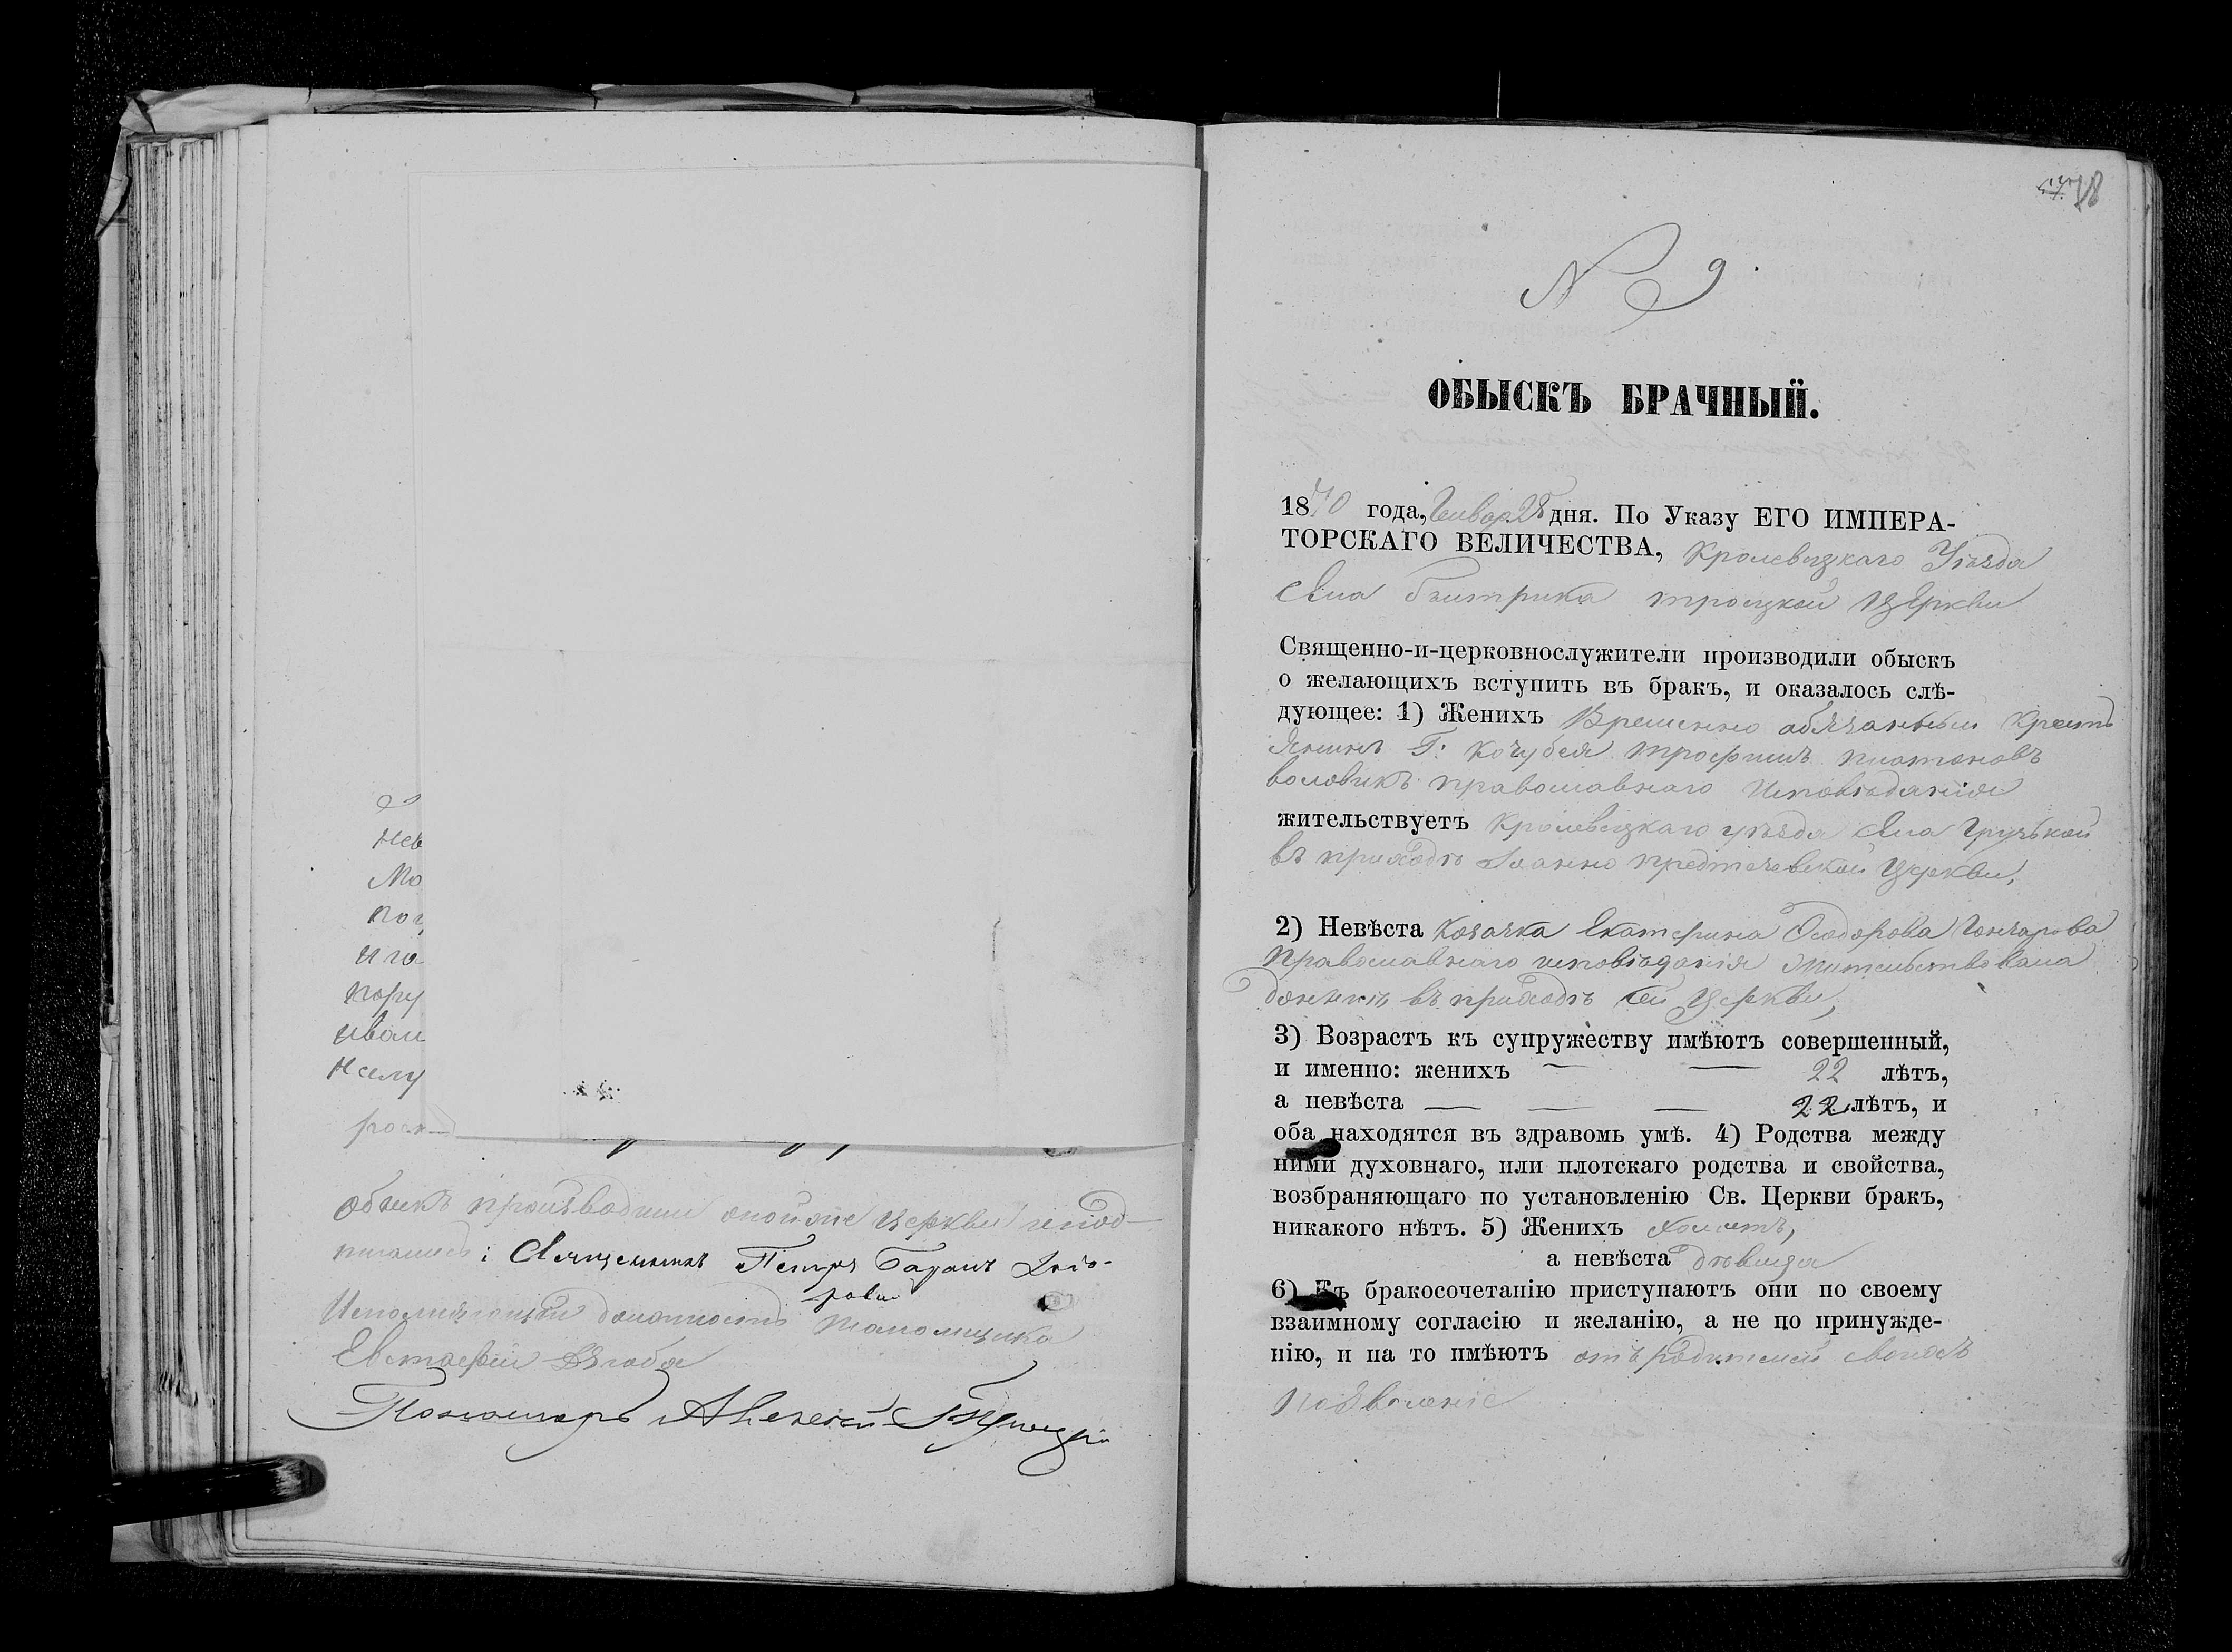 Нев
Мо
Пог
Ива
Пору
Иван
Несму
обыскъ производили оной же Церкви и под-
писались: Священникъ Петръ
Исполняющій должность
Евстафій
Пономарь Алексей
78
N 9.
ОБЫСКЪ БРАЧНЫЙ.
1870 года, Генвар. 28 дня. По Указу ЕГО ИМПЕРА-
ТОРСКАГО ВЕЛИЧЕСТВА, Кролевецкаго Уѣзда
Села Быстрика Троицкой Церкви
Священно-и-церковнослужители производили обыскъ
о желающихъ вступить въ бракъ, и оказалось слѣ-
дующее: 1) Женихъ Временно обязанный Кресть
янинъ Г: Кочубея Трофимъ Платоновъ
воловикъ православнаго Исповѣданія
жительствуетъ Кролевецкаго уѣзда Села Грузской
въ приходѣ Іоанно предтечевской Церкви,
2) Невѣста Козачка Екатерина Феодорова Гончарова
Православнаго исповѣданія жительствовала
донынѣ въ приходѣ сей Церкви,
3) Возрастъ къ супружеству имѣютъ совершенный,
и именно: женихъ — — 22 лѣтъ,
а невѣста — — — 22 лѣтъ, и
оба находятся въ здравомъ умѣ. 4) Родства между
ними духовнаго, или плотскаго родства и свойства,
возбраняющаго по установленію Св. Церкви бракъ,
никакого нѣтъ. 5) Женихъ холостъ,
а невѣста дѣвица
6) Къ бракосочетанію приступаютъ они по своему
взаимному согласію и желанію, а не по принужде-
нію, и на то имѣютъ отъ родителей своихъ
позволеніе